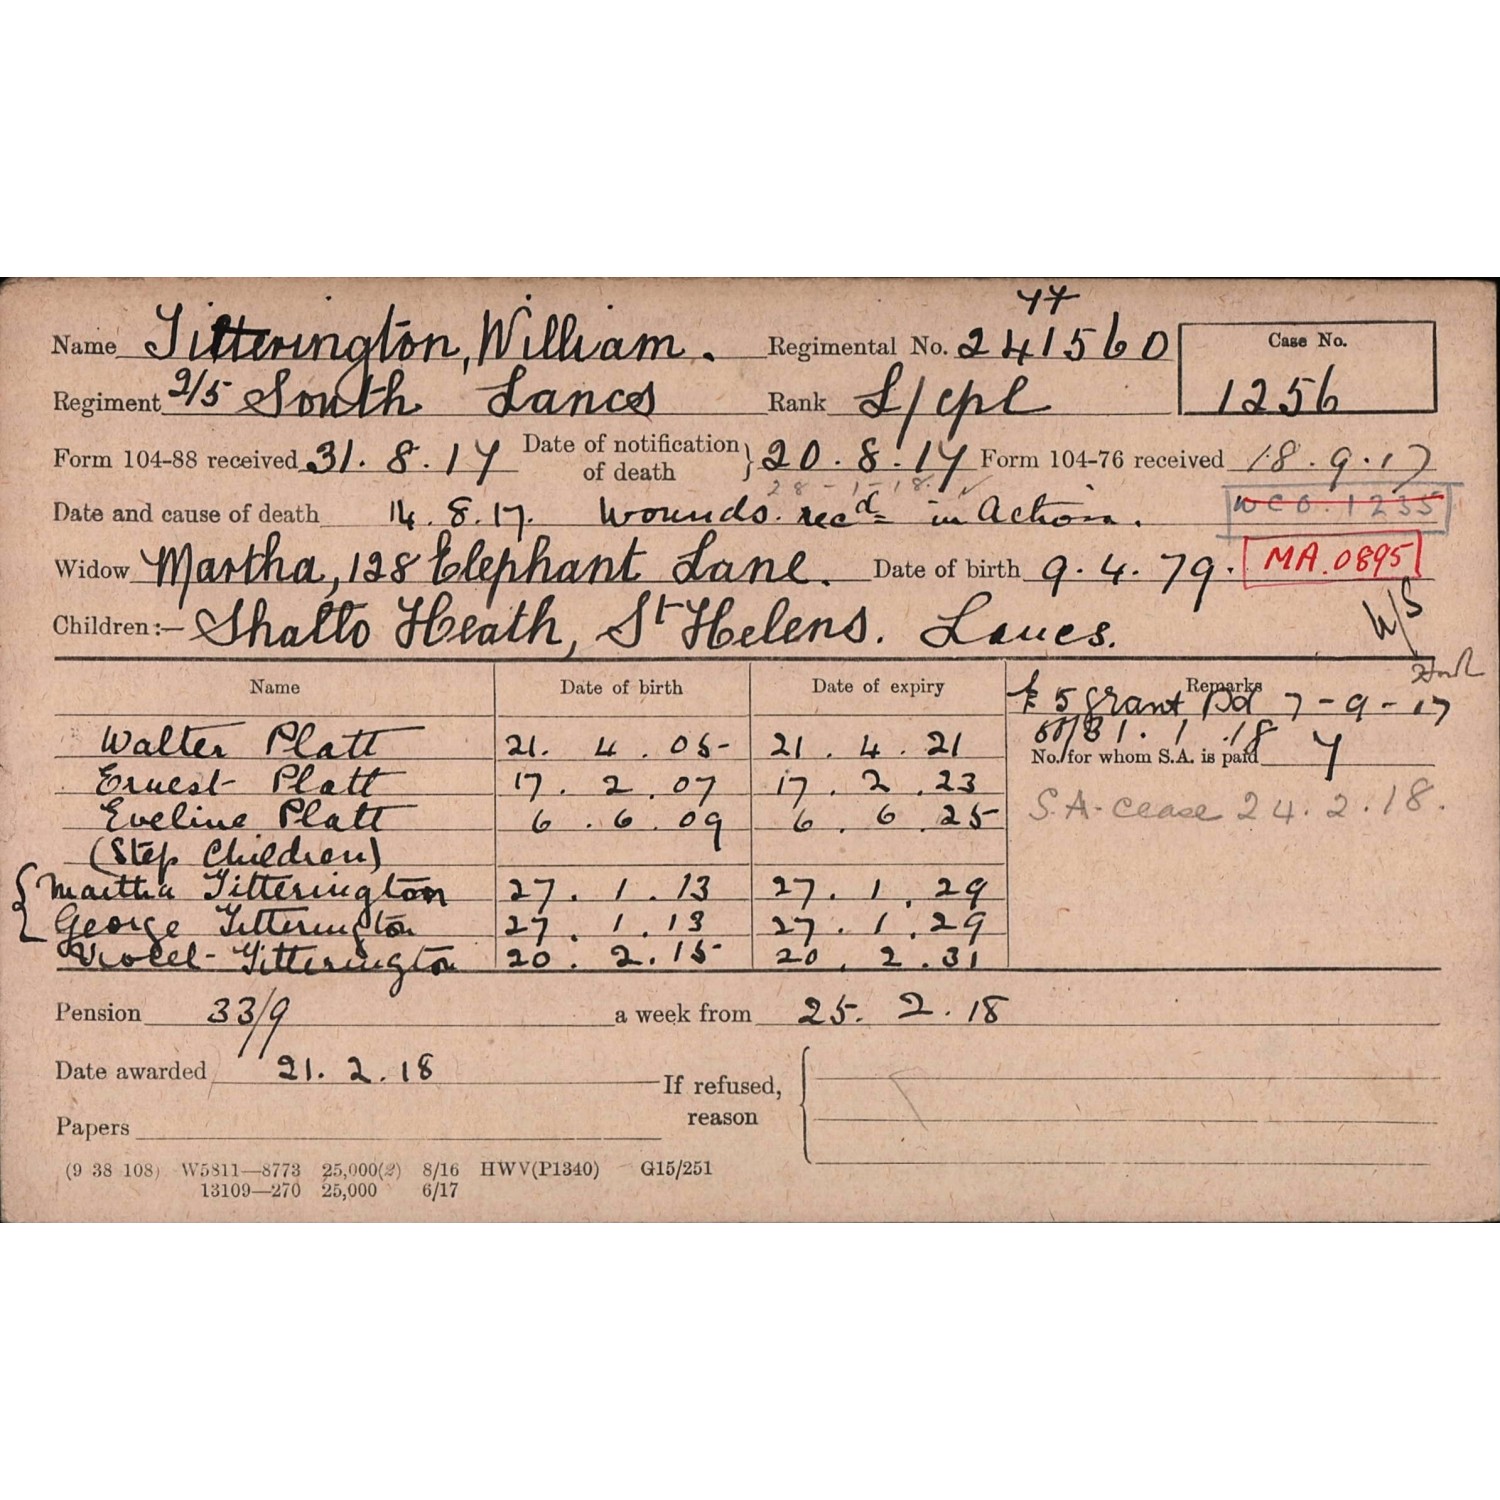 Name Titterington, William. Regimental No. 241560 Case No.
Regiment 2/5 South Lancs Rank L/cpl 1256
Form 104-88 received 31.8.17 Date of notification of death } 20.8.17 Form 104-76 received 18.9.17
28-1-18.
Date and cause of death 14.8.17. Wounds recd in Action. WCO.1235
Widow Martha, 128 Elephant Lane. Date of birth 9.4.79. MA.0895
Children:— Thatto Heath, St Helens. Lancs.
Name Date of birth Date of expiry Remarks
£5 grant Pd 7-9-17
31.1.18
Walter Platt 21.4.05 21.4.21 No. for whom S.A. is paid 7
Ernest Platt 17.2.07 17.2.23
Eveline Platt 6.6.09 6.6.25 S.A. cease 24.2.18.
(Step Children)
{ Martha Titterington 27.1.13 27.1.29
George Titterington 27.1.13 27.1.29
Violet Titterington 20.2.15 20.2.31
Pension 33/9 a week from 25.2.18
Date awarded 21.2.18 If refused, reason
Papers
(9 38 108) W5811—8773 25,000(2) 8/16 HWV(P1340) G15/251
13109—270 25,000 6/17